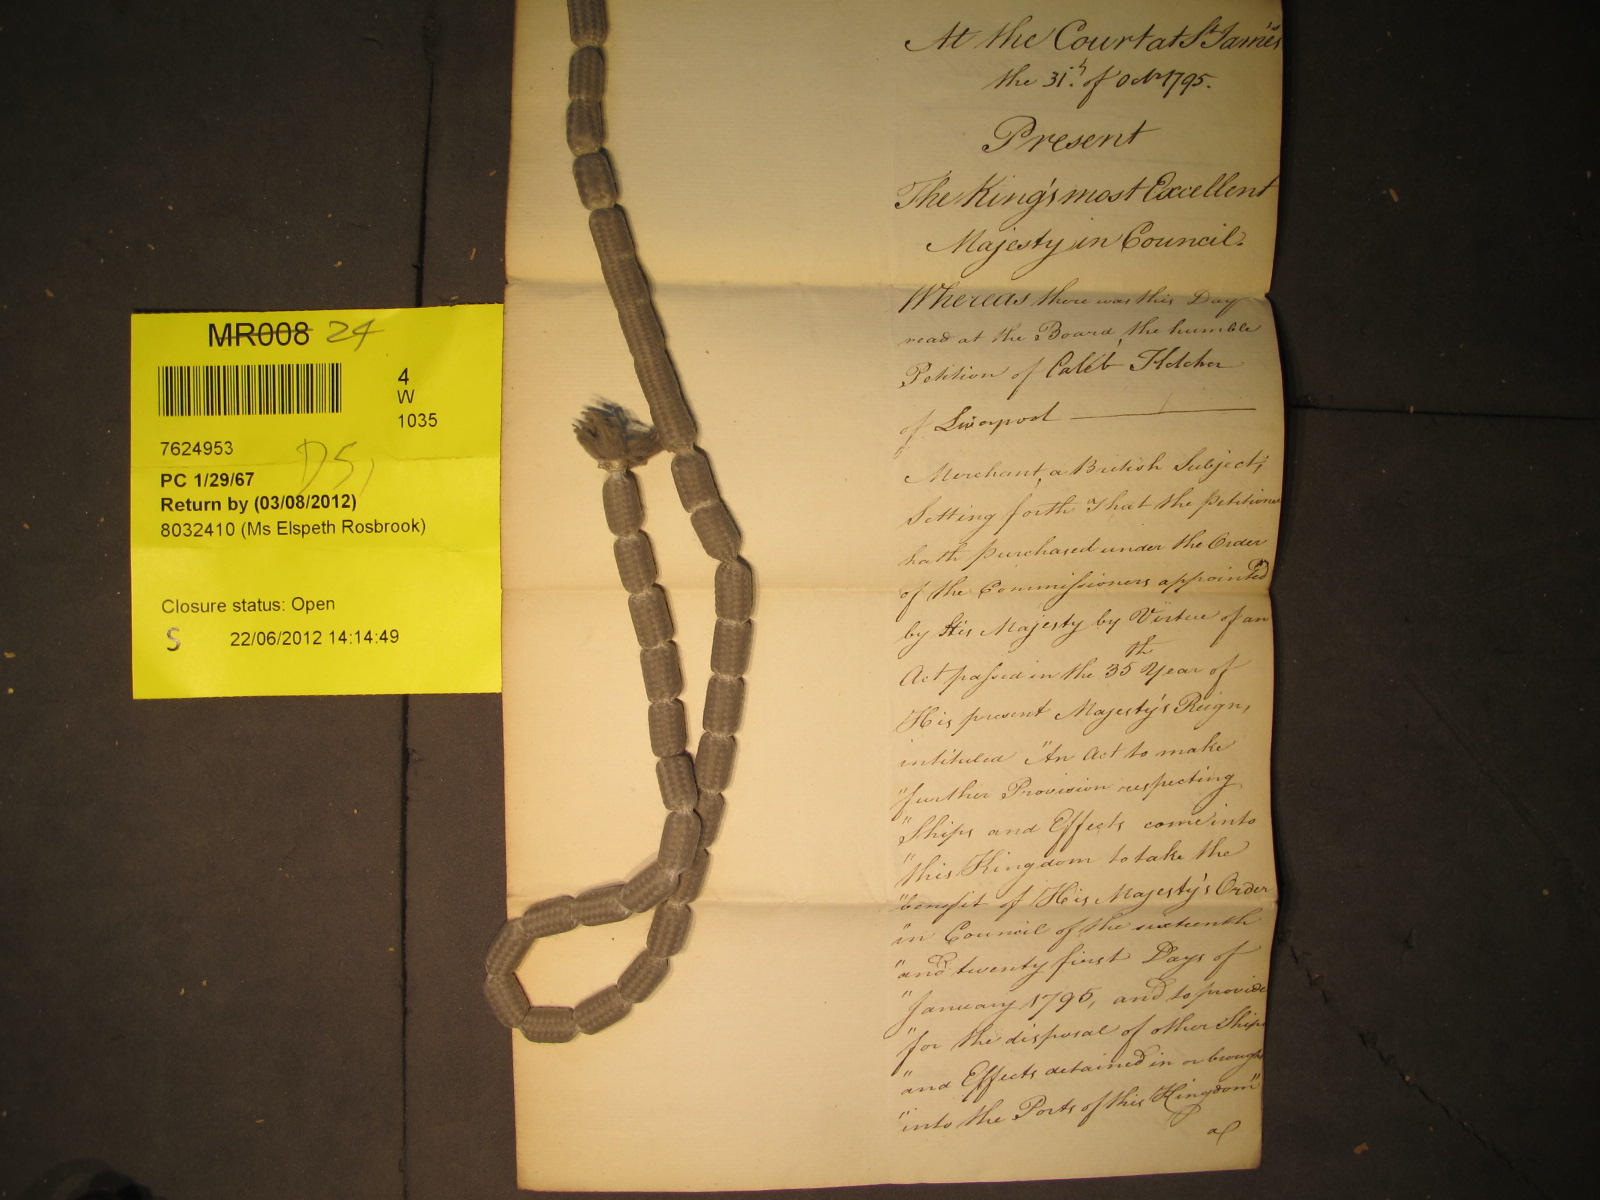 MR008 24
4
W
1035
7624953
DS,
PC 1/29/67
Return by (03/08/2012)
8032410 (Ms Elspeth Rosbrook)
Closure status: Open
S 22/06/2012 14:14:49
At the Court at St James's
the 31st of Octr 1795.
Present
The King's most Excellent
Majesty in Council.
Whereas there was this Day
read at the Board, the humble
Petition of Caleb Fletcher
of Liverpool
Merchant, a British Subject,
Setting forth That the Petitioner
hath purchased under the Order
of the Commissioners appointed
by His Majesty by Virtue of an
Act passed in the 35th Year of
His present Majesty's Reign,
intituled "An Act to make
"further Provision respecting
"Ships and Effects come into
"this Kingdom to take the
"benefit of His Majesty's Order
"in Council of the sixteenth
"and twenty first Days of
"January 1795, and to provide
"for the disposal of other Ships
"and Effects detained in or brought
"into the Ports of this Kingdom"
a